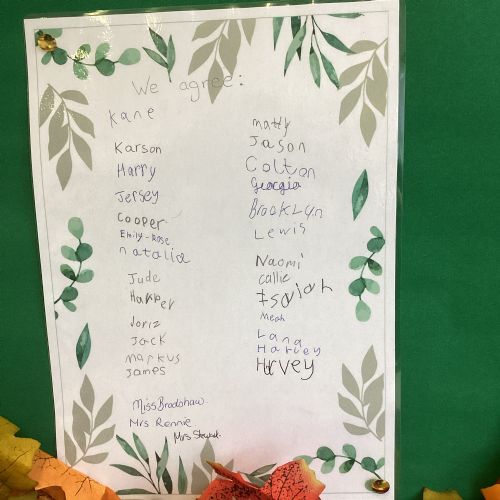 We agree:
Kane
Karson
Harry
Jersey
Cooper
Emily-Rose
natalia
Jude
Harper
Joriz
Jack
Markus
James
Miss Bradshaw
Mrs Rennie
Mrs
matty
Jason
Colton
Georgia
BrooKLyn
Lewis
Naomi
callie
Isaiah
Lana
Harley
Harvey